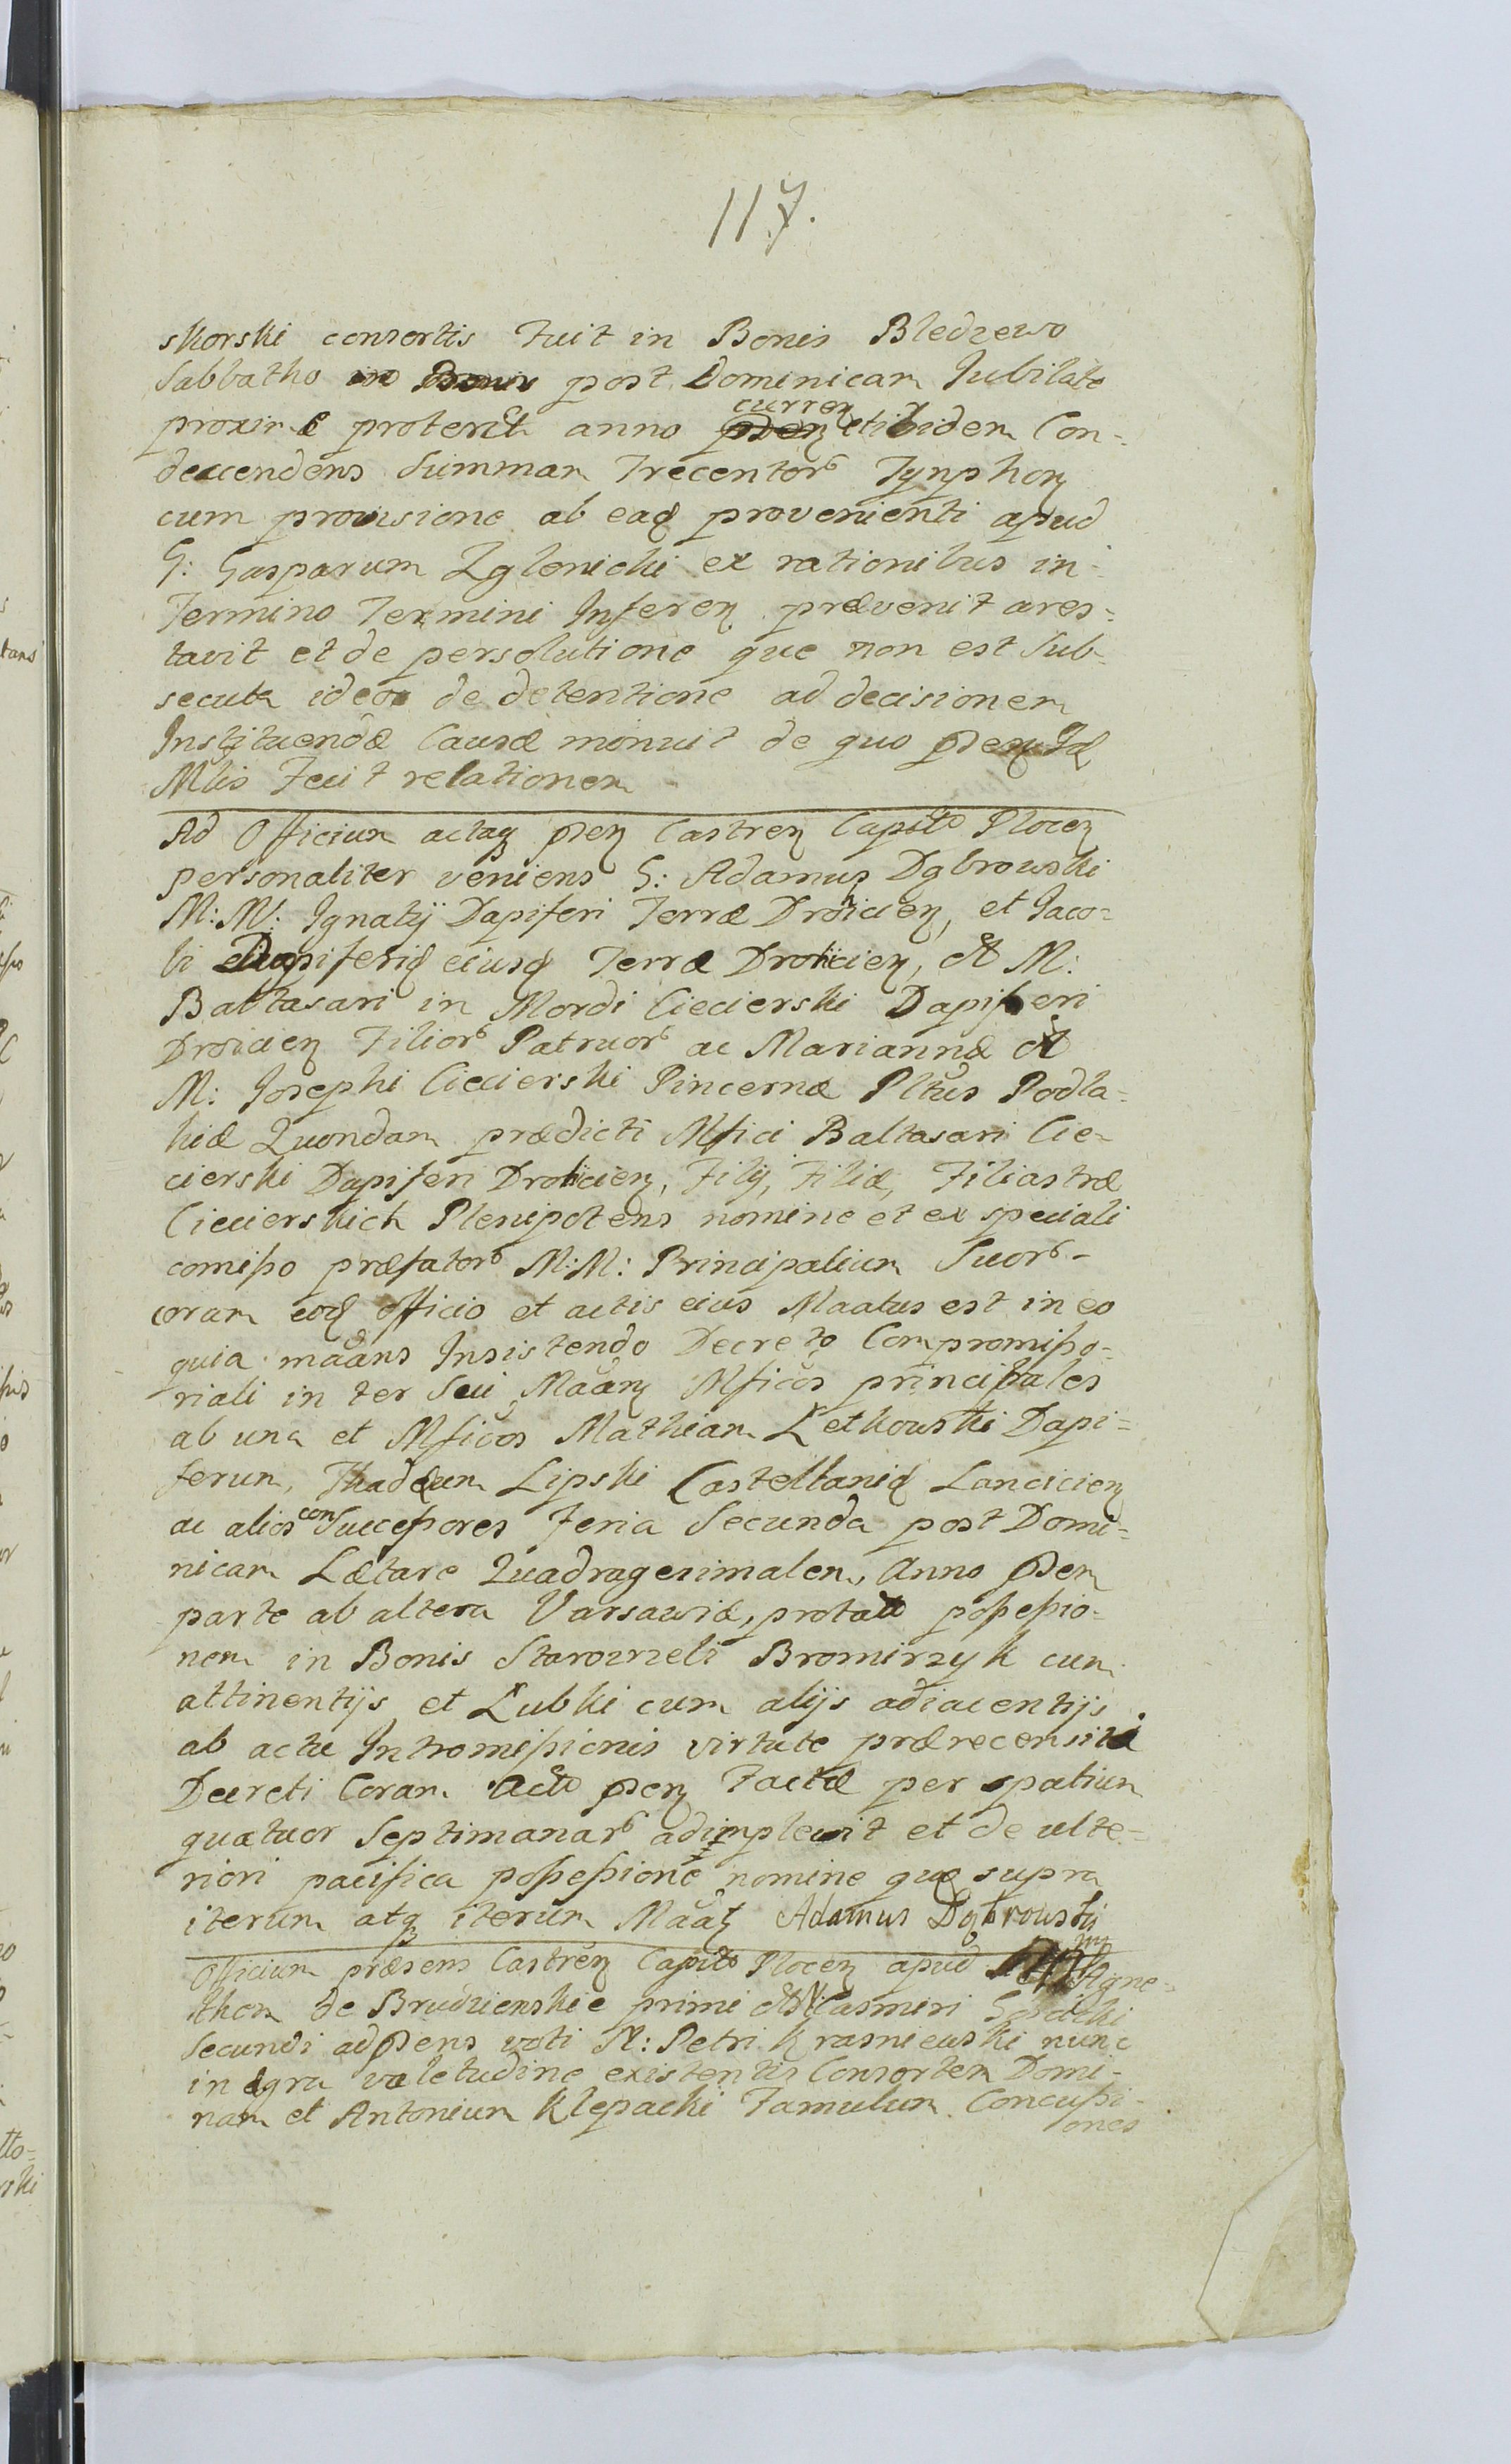 117.
skorski consortis Fuit in Bonis Bledzewo
Sabbatho post Dominicam Jubilate
proxime anno curren et ibidem Con-
descendens Summam Trecentor Tynphon
cum provisione ab eaq provenienti apud
G: Gasparum Zglenicki ex rationibus in
Termino Termini Inferen prævenit ares-
tavit et de persolutione que non est Sub-
secuta ideo de detentione ad decisionem
Instituendæ Causæ monuit de quo pnen Jd
Mlis Fecit relationem
Ad Officium actaq pnen Castren Capitle Plocen
personaliter veniens G: Adamus Dąbrowski
M:M: Ignatij Dapiferi Terræ Drohicien, et Jaco-
bi Dapiferiq eiusq Terræ Drohicien, et M:
Baltasari in Mordi Ciecierski Dapiferi
Drohicien Filior Patruor ac Mariannæ et
M: Josephi Ciecierski Pincernæ Pltus Podla-
hiæ Quondam prædicti Mfici Baltasari Cie-
cierski Dapiferi Drohicien, Filij, Filiæ, Filiastræ
Ciecierskich Plenipotens nomine et ex speciali
comisso præfator M:M: Principalium Suor-
coram eoq officio et actis eius Maatus est in eo
quia maans Insistendo Decreto Compromisso-
riali in ter Sui Maan Mficos principales
ab una et Mficos Mathiam Łetkowski Dapi-
ferum, Thadeum Lipski Castellaniq Lancicien
ac alios con Successores Feria Secunda post Domi-
nicam Lætare Quadragesimalem, Anno pnen
parte ab altera Varsawiæ, possessio-
nem in Bonis Starozrzeli Bromirzyk cum
attinentijs et Łubki cum alijs adiacentijs
ab actu Intromissionis virtute prærecensiti
Decreti Coram Acto pnen Factæ per spatium
quatuor Septimanar adimplevit et de ulte-
riori pacifica possessione nomine quo supra
iterum atq iterum Maat Adamus Dąbrowski
Officium præsens Castren Capitle Plocen apud Agne-
them de Brudzienskie primi et Casimiri
Secundi ad pnens voti M: Petri Krasniewski nunc
in ægra valetudine existentis Consortem Domi-
nam et Antonium Klepacki Famulum Concussi-
ones